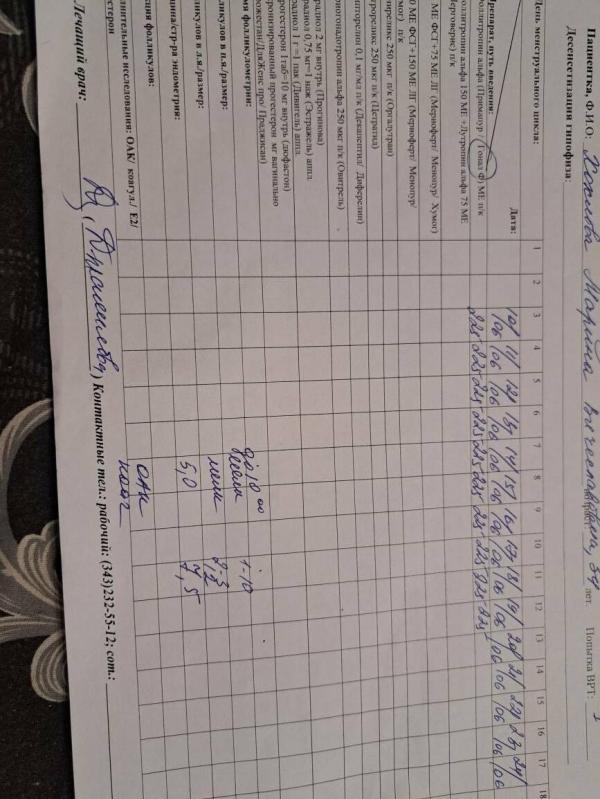 Пациентка, Ф.И.О: Марина Вячеславовна, 34 лет. Попытка ВРТ: 1
Десенситизация гипофиза:
День менструального цикла: 1 2 3 4 5 6 7 8 9 10 11 12 13 14 15 16 17 18
Дата: 10/06 11/06 12/06 13/06 14/06 15/06 16/06 17/06 18/06 19/06 20/06 21/06 22/06 23/06 24/06
Препарат, путь введения:
оллитропин альфа (Примапур / Гонал ф) МЕ п/к 225 225 225 225 225 225 225 225 225 225
оллитропин альфа 150 МЕ +Лутропин альфа 75 МЕ
ерговерис) п/к
МЕ ФСГ+75 МЕ ЛГ (Мериоферт/ Менопур/ Хумог)
0 МЕ ФСГ+150 МЕ ЛГ (Мериоферт/ Менопур/
умог) п/к
иреликс 250 мкг п/к (Оргалутран)
трореликс 250 мкг п/к (Цетратид)
ипторелин 0,1 мг/мл п/к (Декапептил/ Диферелин)
ионгонадотропин альфа 250 мкг п/к (Овитрель)
радиол 2 мг внутрь (Прогинова)
радиол 0,75 мг=1 наж (Эстражель) аппл.
радиол 1 г=1 пак (Дивигель) аппл.
рогестерон 1таб=10 мг внутрь (дюфастон)
ронизированный прогестерон мг вагинально
рожестан/ДляЖенс про/ Праджисан)
мя фолликулометрии: до 10 00 1-10
ликулов в п.я./размер: мелк
ликулов в л.я./размер:
щина/стр-ра эндометрия: 5,0 7,5
ция фолликулов:
лнительные исследования: ОАК/ коагул./ Е2/ ОАК
стерон коаг
Лечащий врач: ) Контактные тел.: рабочий: (343)232-55-12; сот.: